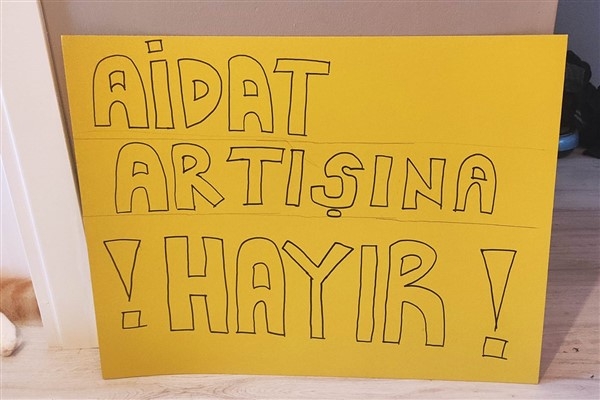 AİDAT
ARTIŞINA
! HAYIR !